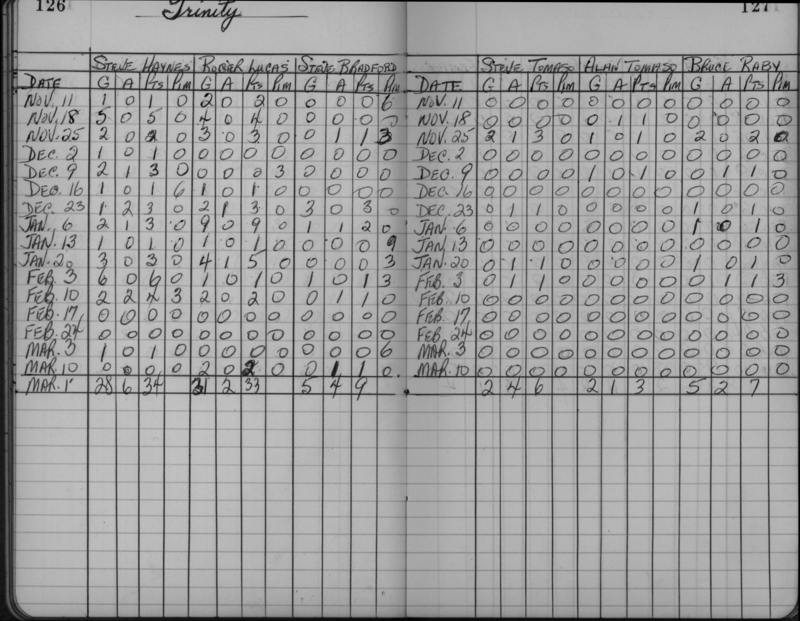 126 Trinity 127
STEVE HAYNES ROGER LUCAS STEVE BRADFORD STEVE TOMASO ALAN TOMASO BRUCE RABY
DATE G A Pts Pim G A Pts Pim G A Pts Pim DATE G A Pts Pim G A Pts Pim G A Pts Pim
NOV. 11 1 0 1 0 2 0 2 0 0 0 0 6 NOV. 11 0 0 0 0 0 0 0 0 0 0 0 0
NOV. 18 5 0 5 0 4 0 4 0 0 0 0 0 NOV. 18 0 0 0 0 0 1 1 0 0 0 0 0
NOV. 25 2 0 2 0 3 0 3 0 0 1 1 3 NOV. 25 2 1 3 0 1 0 1 0 2 0 2 0
DEC. 2 1 0 1 0 0 0 0 0 0 0 0 0 DEC. 2 0 0 0 0 0 0 0 0 0 0 0 0
DEC. 9 2 1 3 0 0 0 0 3 0 0 0 0 DEC. 9 0 0 0 0 1 0 1 0 0 1 1 0
DEC. 16 1 0 1 6 1 0 1 0 0 0 0 0 DEC. 16 0 0 0 0 0 0 0 0 0 0 0 0
DEC. 23 1 2 3 0 2 1 3 0 3 0 3 0 DEC. 23 0 1 1 0 0 0 0 0 1 0 1 0
JAN. 6 2 1 3 0 9 0 9 0 1 1 2 0 JAN. 6 0 0 0 0 0 0 0 0 1 0 1 0
JAN. 13 1 0 1 0 1 0 1 0 0 0 0 9 JAN. 13 0 0 0 0 0 0 0 0 0 0 0 0
JAN. 20 3 0 3 0 4 1 5 0 0 0 0 3 JAN. 20 0 1 1 0 0 0 0 0 1 0 1 0
FEB. 3 6 0 6 0 1 0 1 0 1 0 1 3 FEB. 3 0 1 1 0 0 0 0 0 0 1 1 3
FEB. 10 2 2 4 3 2 0 2 0 0 1 1 0 FEB. 10 0 0 0 0 0 0 0 0 0 0 0 0
FEB. 17 0 0 0 0 0 0 0 0 0 0 0 0 FEB. 17 0 0 0 0 0 0 0 0 0 0 0 0
FEB. 24 0 0 0 0 0 0 0 0 0 0 0 0 FEB. 24 0 0 0 0 0 0 0 0 0 0 0 0
MAR. 3 1 0 1 0 0 0 0 0 0 0 0 6 MAR. 3 0 0 0 0 0 0 0 0 0 0 0 0
MAR. 10 0 0 0 0 2 0 2 0 0 1 1 0 MAR. 10 0 0 0 0 0 0 0 0 0 0 0 0
MAR. 1 28 6 34 31 2 33 5 4 9 2 4 6 2 1 3 5 2 7